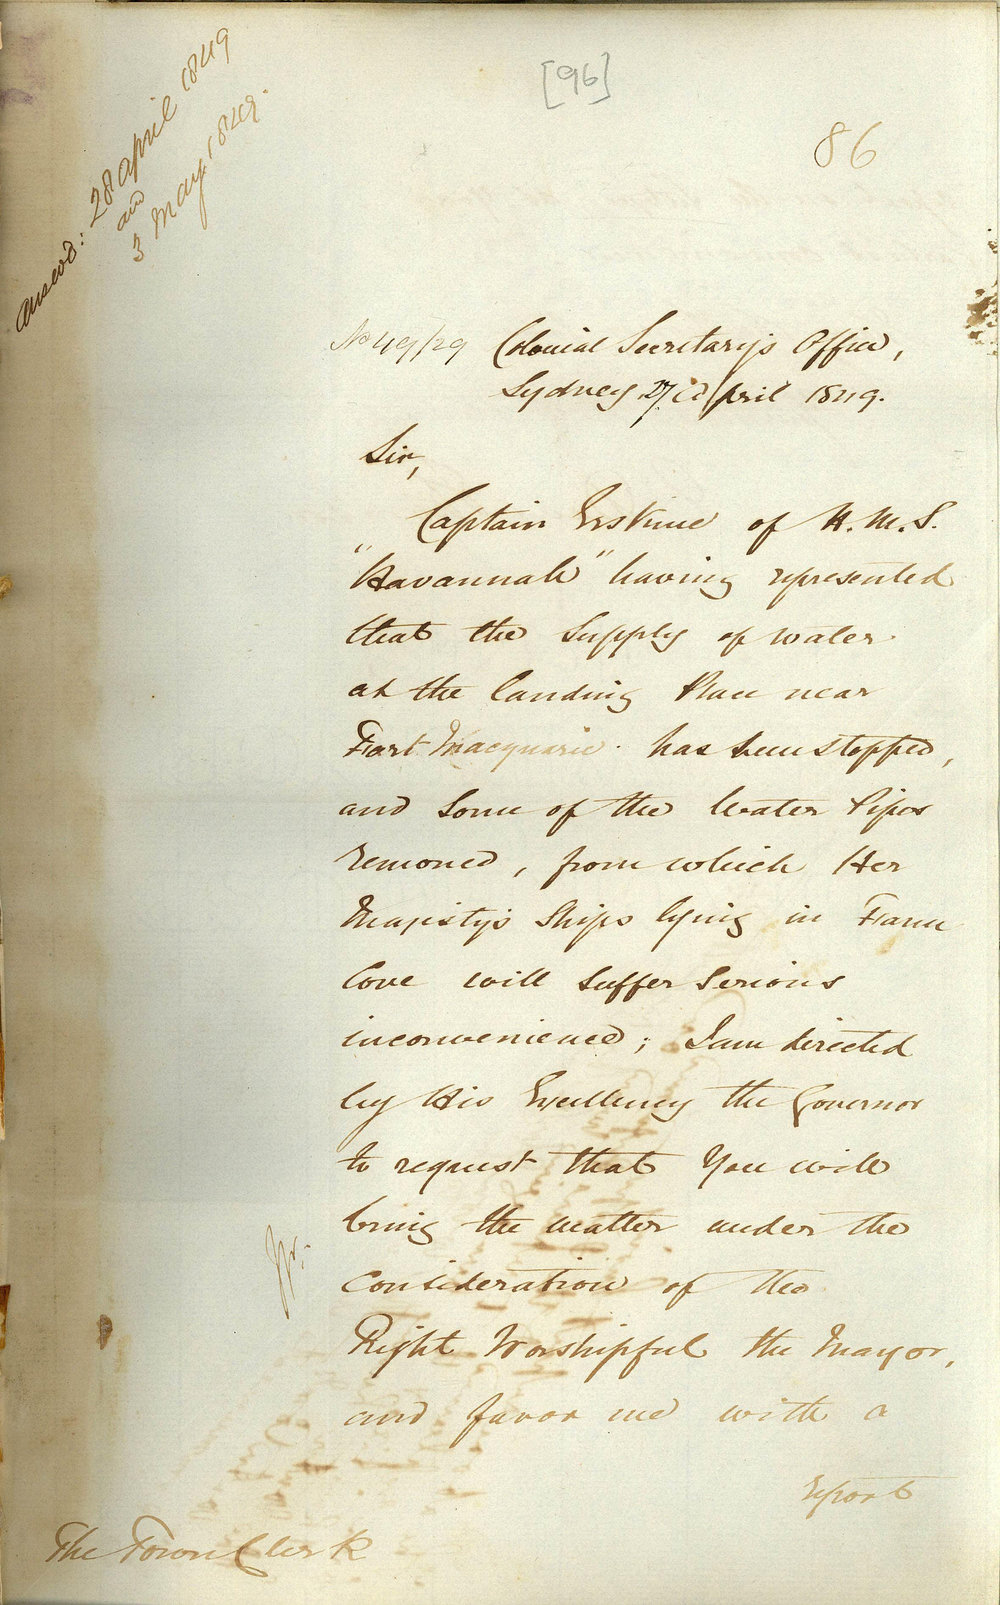 Answd: 28 april 1849
and
3 May 1849.
[96]
86
No 49/29 Colonial Secretary's Office,
Sydney 27 April 1849.
Sir,
Captain Erskine of H.M.S.
"Havannah" having represented
that the Supply of water
at the landing Place near
Fort Macquarie has been stopped,
and some of the Water Pipes
removed, from which Her
Majesty's Ships lying in Farm
Cove will suffer serious
inconvenience; I am directed
by His Excellency the Governor
to request that You will
bring the matter under the
consideration of the
Right Worshipful the Mayor,
and favor me with a
report
The Town Clerk